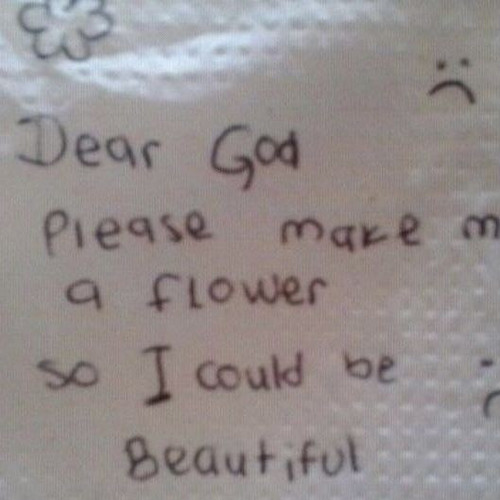 Dear God
Please make m
a flower
so I could be
Beautiful